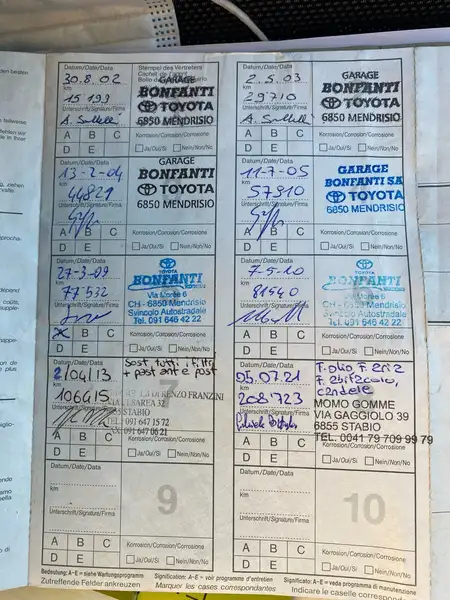 Datum/Date/Data
30.8.02
km
15 199
Unterschrift/Signature/Firma
Stempel des Vertreters
GARAGE
BONFANTI
TOYOTA
6850 MENDRISIO
A B C
D E
Korrosion/Corrosion/Corrosione
Ja/Oui/Si Nein/Non/No
Datum/Date/Data
2.5.03
km
29710
Unterschrift/Signature/Firma
GARAGE
BONFANTI
TOYOTA
6850 MENDRISIO
A B C
D E
Korrosion/Corrosion/Corrosione
Ja/Oui/Si Nein/Non/No
Datum/Date/Data
13-2-04
km
44829
Unterschrift/Signature/Firma
GARAGE
BONFANTI
TOYOTA
6850 MENDRISIO
A B C
D E
Korrosion/Corrosion/Corrosione
Ja/Oui/Si Nein/Non/No
Datum/Date/Data
11-7-05
km
57910
Unterschrift/Signature/Firma
GARAGE
BONFANTI SA
TOYOTA
6850 MENDRISIO
A B C
D E
Korrosion/Corrosion/Corrosione
Ja/Oui/Si Nein/Non/No
Datum/Date/Data
27-3-09
km
77522
Unterschrift/Signature/Firma
TOYOTA
BONFANTI
Via Morée 6
CH - 6850 Mendrisio
Svincolo Autostradale
Tel. 091 646 42 22
A B C
D E
Korrosion/Corrosion/Corrosione
Ja/Oui/Si Nein/Non/No
Datum/Date/Data
7-5-10
km
81540
Unterschrift/Signature/Firma
TOYOTA
BONFANTI
Via Morée 6
CH - 6850 Mendrisio
Svincolo Autostradale
Tel. 091 646 42 22
A B C
D E
Korrosion/Corrosion/Corrosione
Ja/Oui/Si Nein/Non/No
Datum/Date/Data
2/04/13
km
106615
Unterschrift/Signature/Firma
7
Sost. tutti i filtri
+ past ant e post
DI RENZO FRANZINI
STABIO
TEL. 091 647 15 72
FAX 091 647 06 21
A B C
D E
Korrosion/Corrosion/Corrosione
Ja/Oui/Si Nein/Non/No
Datum/Date/Data
05.07.21
km
208723
Unterschrift/Signature/Firma
T. olio, F. aria
F. abitacolo,
candele
MOMO GOMME
VIA GAGGIOLO 39
6855 STABIO
TEL. 0041 79 709 99 79
A B C
D E
Korrosion/Corrosion/Corrosione
Ja/Oui/Si Nein/Non/No
Datum/Date/Data
km
Unterschrift/Signature/Firma
9
A B C
D E
Korrosion/Corrosion/Corrosione
Ja/Oui/Si Nein/Non/No
Datum/Date/Data
km
Unterschrift/Signature/Firma
10
A B C
D E
Korrosion/Corrosion/Corrosione
Ja/Oui/Si Nein/Non/No
Bedeutung: A-E = siehe Wartungsprogramm
Zutreffende Felder ankreuzen
Signification: A-E = voir programme d'entretien
Marquer les cases correspondantes
Significato: A-E = veda programma di manutenzione
Indicare le caselle corrispondenti